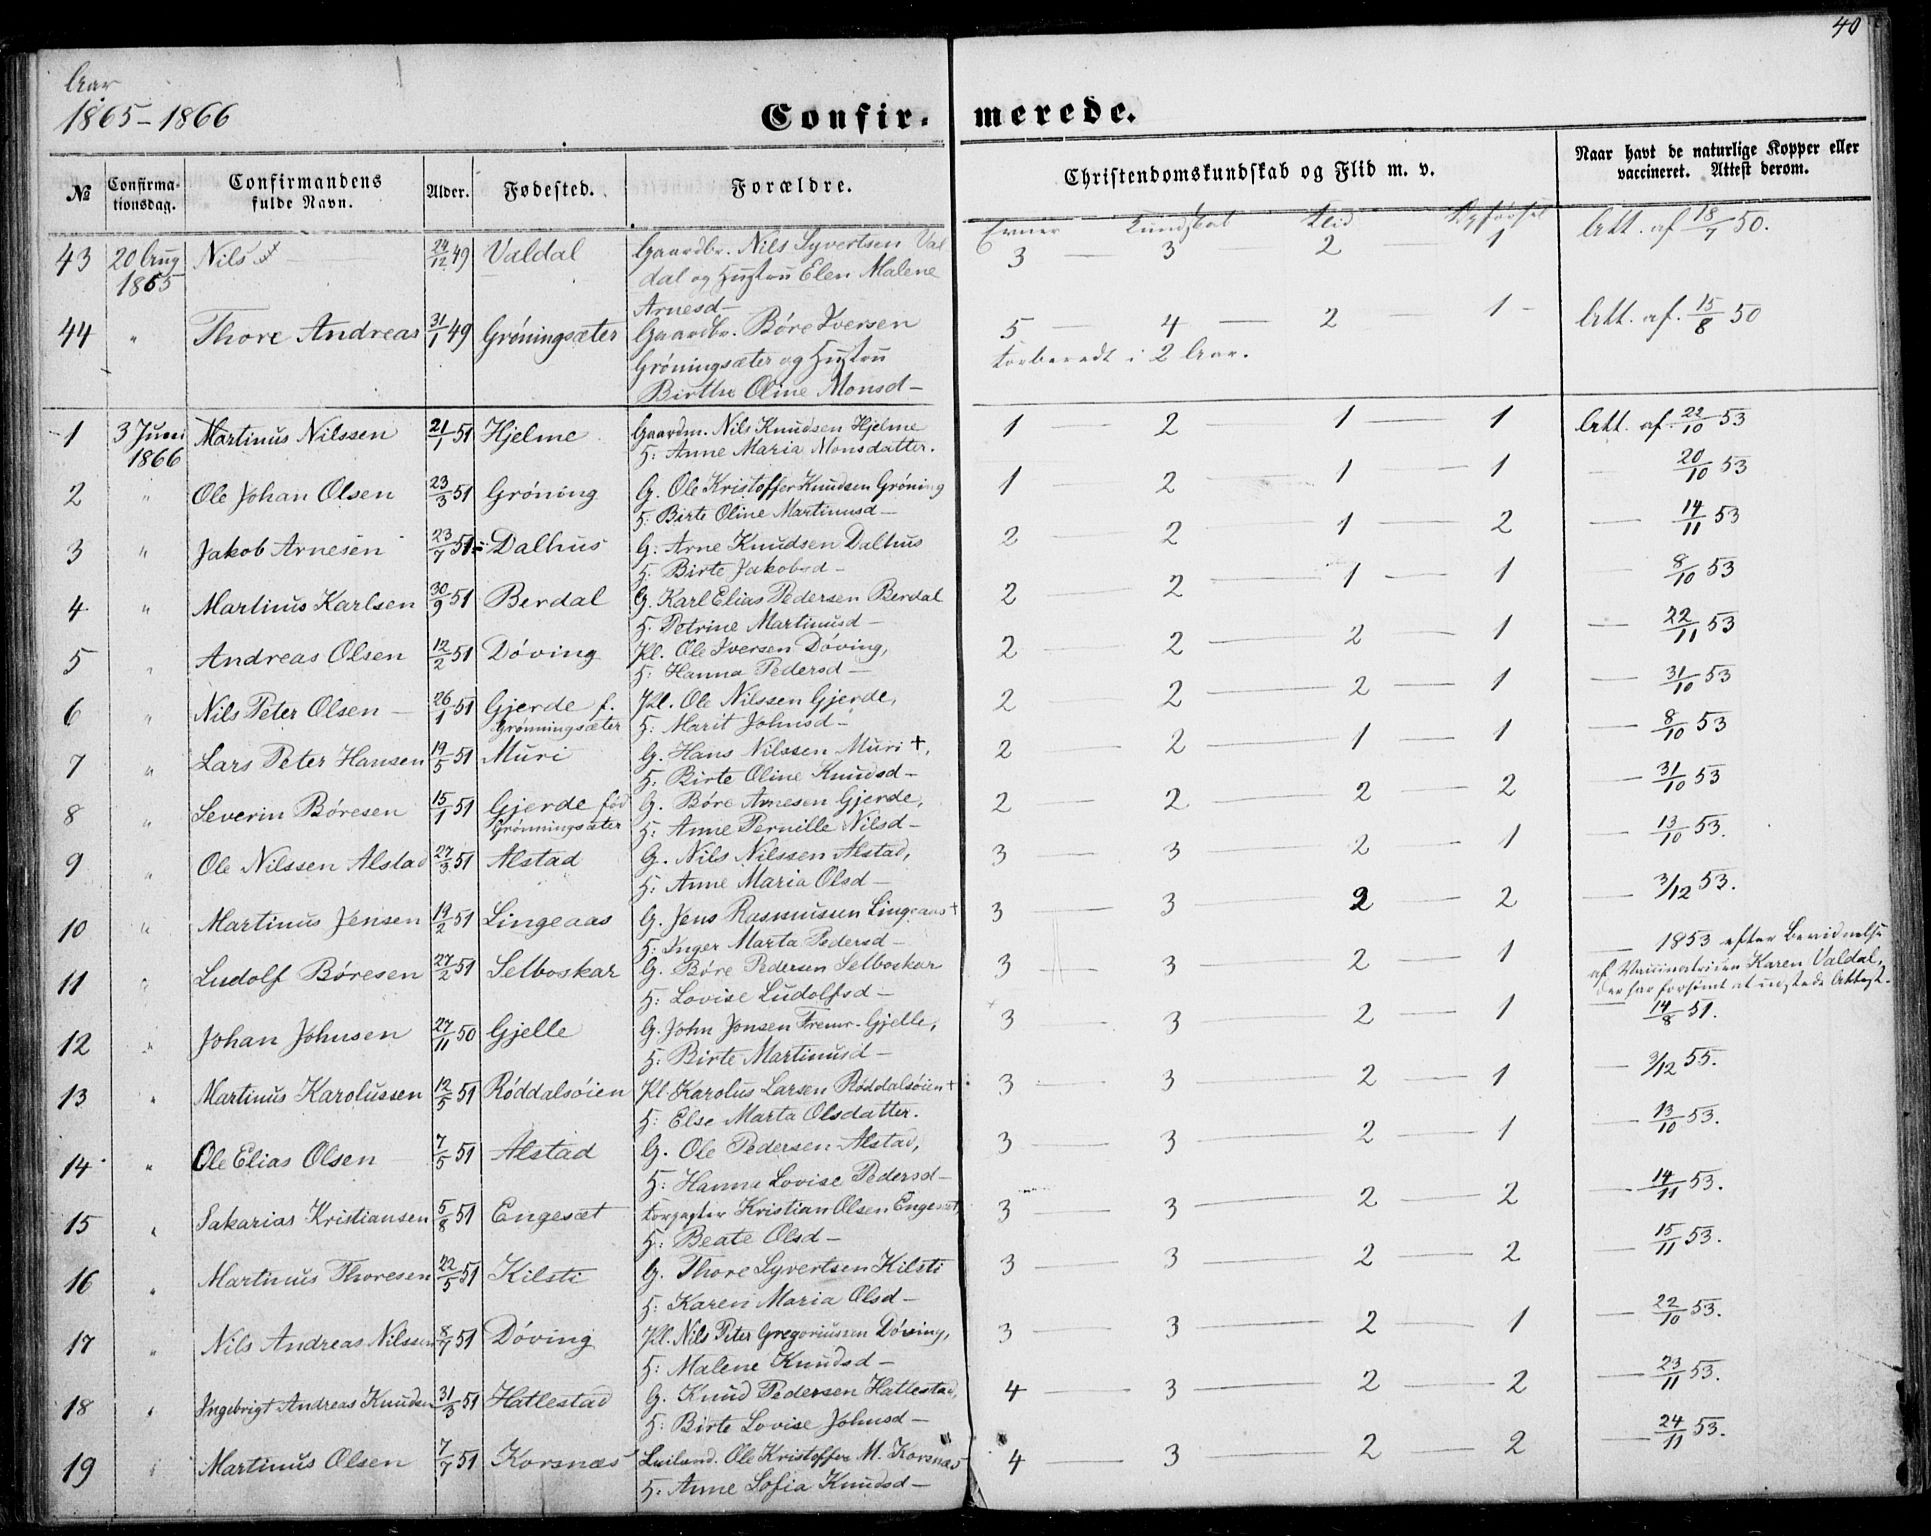 40
Aar
1865-1866
Confir. merede.
№ Confirma- Confirmandens Alder. Fødested. Forældre. Christendomskundskab og Flid m. v. Naar havt de naturlige Kopper eller
tionsdag. fulde Navn. vaccineret. Attest derom.
Evner Kundskab Flid Opførsel
43 20 Aug Nils 24/12 49 Valdal Gaardbr. Nils Syvertsen Val 3 — 3 2 1 Att. af 18/7 50.
1865 dal og Hustru Elen Malene
Arnesd—
44 " Thore Andreas 31/1 49 Grøningsæter Gaardbr. Børe Iversen 5 — 4 — 2 — 1 - Att. af. 15/8 50
Grøningsæter og Hustru forberedt i 2 Aar.
Birthe Oline Monsd—
1 3 Juni Martinus Nilssen 21/1 51 Hjelme Gaardm. Nils Knudsen Hjelme 1 — 2 — 1 — 1 Att. af. 22/10 53
1866 H: Anne Maria Monsdatter.
2 " Ole Johan Olsen 23/3 51 Grøning G. Ole Kristoffer Knudsen Grøning 1 — 2 — 1 — 1 — 20/10 53
H: Birte Oline Martinusd—
3 " Jakob Arnesen 23/7 51 Dalhus G. Arne Knudsen Dalhus 2 2 — 1 — 2 — 14/11 53
H: Birte Jakobsd—
4 " Martinus Karlsen 30/9 51 Berdal G. Karl Elias Pedersen Berdal 2 2 — 1 — 1 — 8/10 53
H: Petrine Martinusd—
5 " Andreas Olsen 12/2 51 Døving Pl. Ole Iversen Døving, 2 2 — 2 — 1 — 22/11 53
H: Hanna Pedersd—
6 " Nils Peter Olsen — 26/1 51 Gjerde f. Pl. Ole Nilssen Gjerde, 2 2 — 2 — 1 — 31/10 53
Grønningsæter H: Marit Johnsd—
7 " Lars Peter Hansen 19/5 51 Muri G. Hans Nilssen Muri +, 2 — 2 — 1 — 1 — 8/10 53
H: Birte Oline Knudsd—
8 " Severin Børesen 15/1 51 Gjerde fød G. Børe Arnesen Gjerde, 2 — 2 — 2 — 2 — 31/10 53
Grønningsæter H: Anne Pernille Nilsd—
9 " Ole Nilssen Alstad 27/3 51 Alstad G. Nils Nilssen Alstad, 3 — 3 — 2 - 1 — 13/10 53.
H: Anne Maria Olsd—
10 " Martinus Jensen 19/2 51 Lingeaas G. Jens Rasmussen Lingeaas + 3 — 3 — 2 — 2 — 3/12 53.
H: Inger Marta Pedersd—
11 " Ludolf Børesen 27/2 51 Selboskar G. Børe Pedersen Selboskar 3 3 — 2 — 1 — 1853 efter Bevidnelse
H: Lovise Ludolfsd— af Vaccinatricen Karen Valdal,
der har forsømt at udstede Attest.
12 " Johan Johnsen 27/11 50 Gjelle G. John Jonsen Fremr. Gjelle, 3 — 3 — 2 — 1 — 14/8 51.
H: Birte Martinusd—
13 " Martinus Karolussen 12/5 51 Røddalsøien Pl. Karolus Larsen Røddalsøien + 3 — 3 — 2 — 1 — 3/12 55.
H: Else Marta Olsdatter.
14 " Ole Elias Olsen — 7/5 51 Alstad G. Ole Pedersen Alstad, 3 — 3 — 2 — 1 — 13/10 53.
H: Hanna Lovise Pedersd—
15 " Sakarias Kristiansen 5/8 51 Engesæt Forpagter Kristian Olsen Engesæt, 3 — 3 — 2 — 2 — 14/11 53.
H: Beate Olsd—
16 " Martinus Thoresen 22/5 51 Kilsti G. Thore Syvertsen Kilsti 3 — 3 — 2 — 2 — 15/11 53.
H: Karen Maria Olsd—
17 " Nils Andreas Nilssen 8/7 51 Døving Pl. Nils Peter Gregoriussen Døving, 3 — 3 — 2 — 1 — 22/10 53.
H: Malene Knudsd—
18 " Ingebrigt Andreas Knudsen 31/3 51 Hatlestad G. Knud Pedersen Hatlestad, 4 — 3 — 2 — 2 — 23/11 53.
H: Birte Lovise Johnsd—
19 " Martinus Olsen 7/7 51 Korsnæs Ole Kristoffer M. Korsnæs 4 — 3 — 2 — 2 — 24/11 53.
H: Anne Sofia Knudsd—